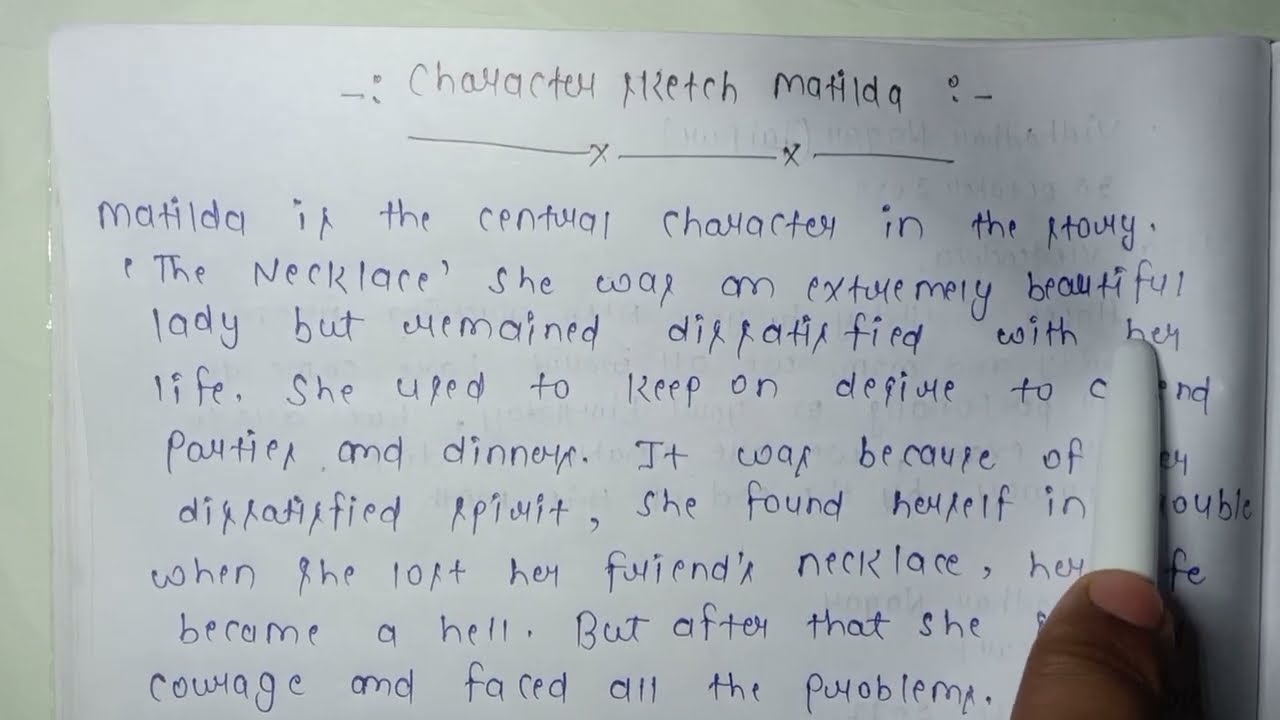 -: Character sketch Matilda :-
Matilda is the central character in the story.
'The Necklace' she was an extremely beautiful
lady but remained dissatisfied with her
life. She used to keep on desire to
Parties and dinners. It was because of
dissatisfied spirit, she found herself in
when she lost her friend's necklace, her
became a hell. But after that she
courage and faced all the problems.